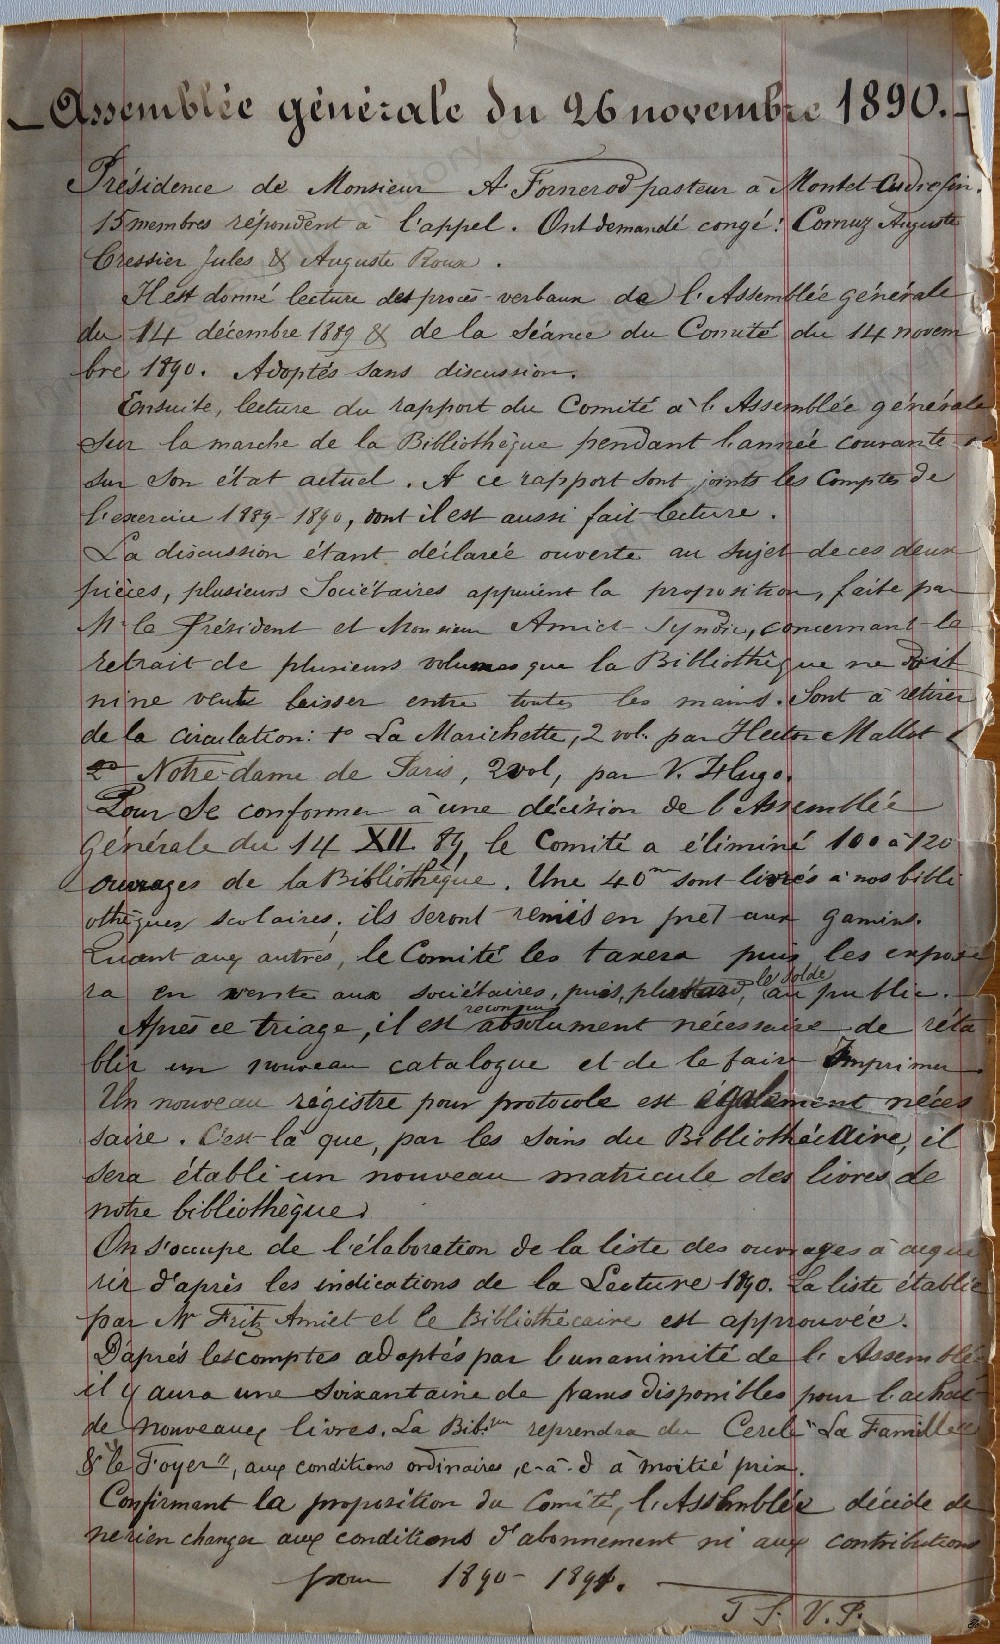 Assemblée générale du 26 novembre 1890.
Présidence de Monsieur A Fornerod pasteur à Montet Cudrefin.
15 membres répondent à l'appel. Ont demandé congé: Cornuz Auguste
Cressier Jules & Auguste Roux.
Il est donné lecture des procès-verbaux de l'Assemblée générale
du 14 décembre 1889 & de la séance du Comité du 14 novem
bre 1890. Adoptés sans discussion.
Ensuite, lecture du rapport du Comité à l'Assemblée générale
sur la marche de la Bibliothèque pendant l'année courante
sur son état actuel. A ce rapport sont joints les Comptes de
l'exercice 1889-1890, dont il est aussi fait lecture.
La discussion étant déclarée ouverte au sujet de ces deux
pièces, plusieurs Sociétaires appuient la proposition, faite par
M. le Président et Monsieur Amiet-Syndic, concernant le
retrait de plusieurs volumes que la Bibliothèque ne doit
ni ne veut laisser entre toutes les mains. Sont à retirer
de la circulation: 1° La Marichette, 2 vol. par Hector Mallot
2° Notre-dame de Paris, 2 vol, par V. Hugo.
Pour se conformer à une décision de l'Assemblée
Générale du 14 XII 89, le Comité a éliminé 100 à 120
ouvrages de la Bibliothèque. Une 40ne sont livrés à nos bibli
othèques scolaires; ils seront remis en prêt aux gamins.
Quant aux autres, le Comité les taxera puis les expose
ra en vente aux sociétaires, puis, plus tard, le solde au public.—
Après ce triage, il est reconnu absolument nécessaire de réta
blir un nouveau catalogue et de le faire Imprimer.
Un nouveau régistre pour protocole est également néces
saire. C'est là que, par les soins du Bibliothécaire, il
sera établi un nouveau matricule des livres de
notre bibliothèque.
On s'occupe de l'élaboration de la liste des ouvrages à acqué
rir d'après les indications de la Lecture 1890. La liste établie
par Mr Fritz Amiet et le Bibliothécaire est approuvée.
D'après les comptes adoptés par l'unanimité de l'Assemblée
il y aura une soixantaine de francs disponibles pour l'achat
de nouveaux livres. La Bib. reprendra du Cercle "La Famille"
& "le Foyer", aux conditions ordinaires, c-à-d à moitié prix.
Confirmant la proposition du Comité, l'Assemblée décide de
ne rien changer aux conditions d'abonnement ni aux contributions
pour 1890-1891.
T S. V. P.